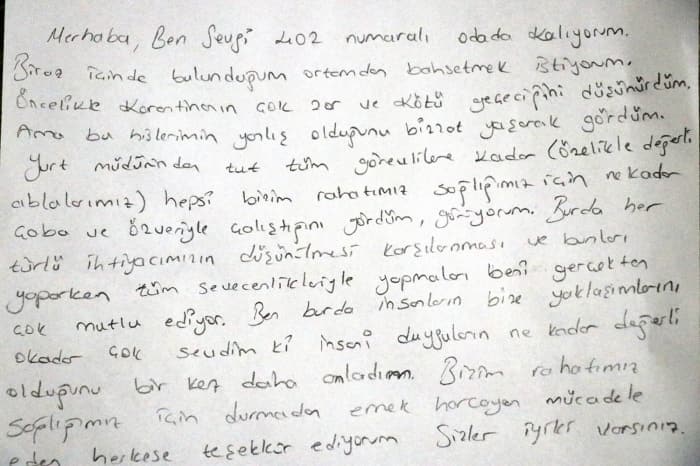 Merhaba, Ben Sevgi 402 numaralı odada kalıyorum.
Biraz içinde bulunduğum ortamdan bahsetmek istiyorum.
Öncelikle Karantinanın çok zor ve kötü geçeceğini düşünürdüm.
Ama bu hislerimin yanlış olduğunu bizzat yaşarak gördüm.
Yurt müdüründen tut tüm görevlilere kadar (özelikle değerli
ablalarımız) hepsi bizim rahatımız sağlığımız için ne kadar
çaba ve özveriyle çalıştığını gördüm, görüyorum. Burda her
türlü ihtiyacımızın düşünülmesi karşılanması ve bunları
yaparken tüm sevecenlikleriyle yapmaları beni gerçekten
çok mutlu ediyor. Ben burda insanların bize yaklaşımlarını
okadar çok sevdim ki insani duyguların ne kadar değerli
olduğunu bir kez daha anladım. Bizim rahatımız
sağlığımız için durmadan emek harcayan mücadele
eden herkese teşekkür ediyorum Sizler iyiki varsınız.